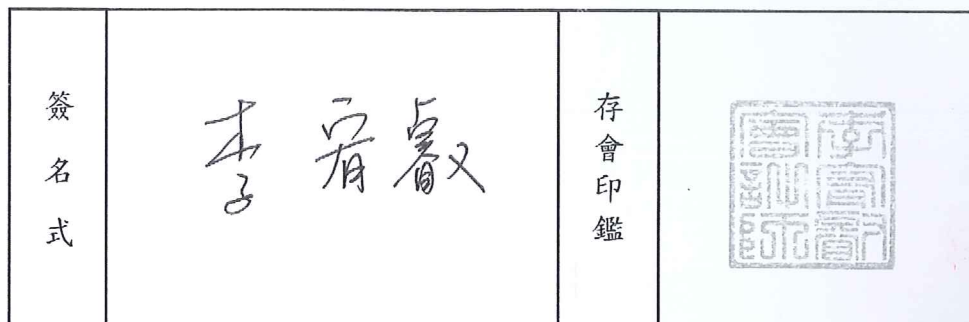 簽名式
李宥叡
存會印鑑